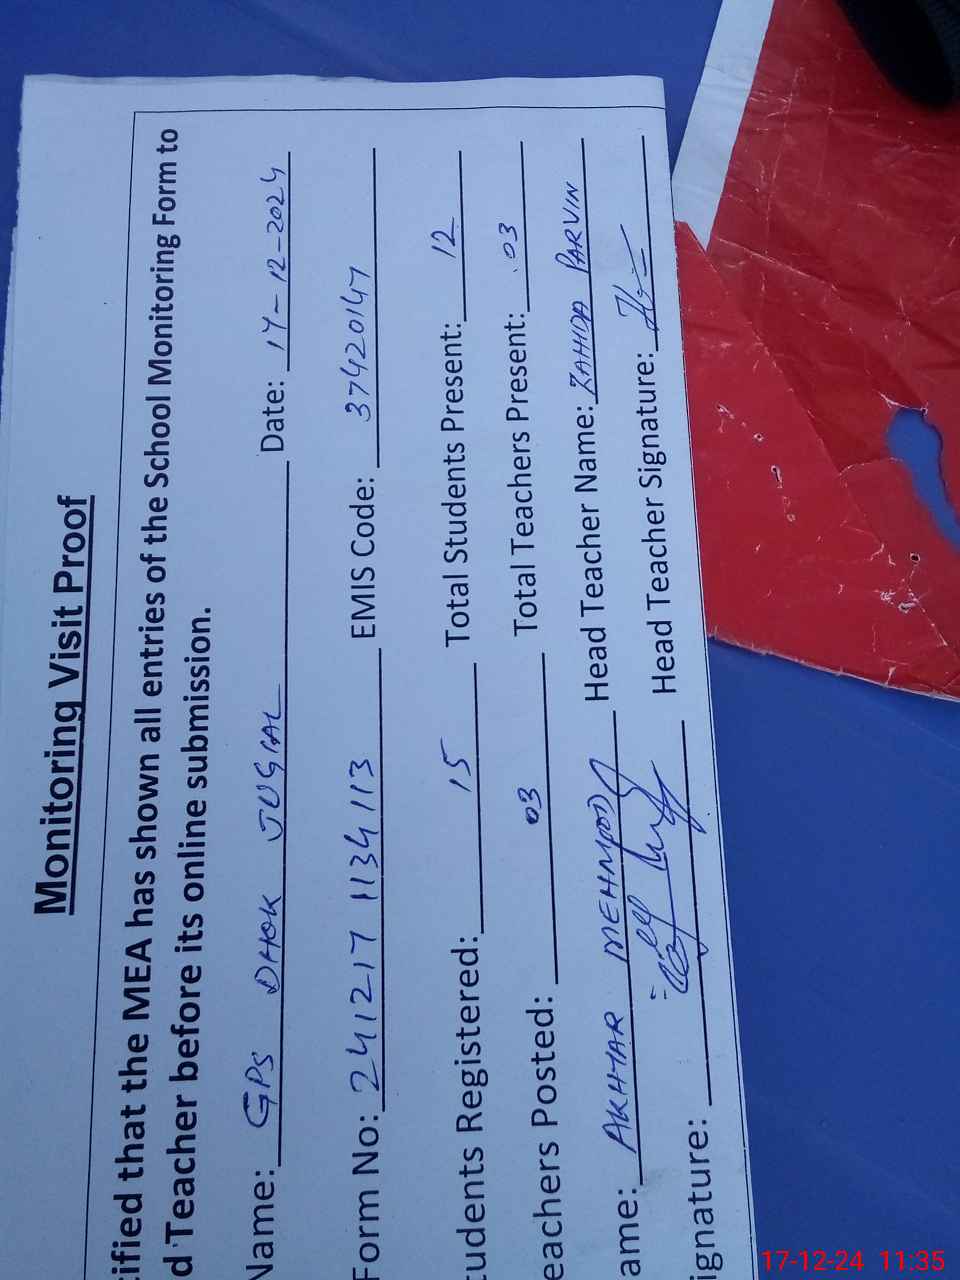 Monitoring Visit Proof
tified that the MEA has shown all entries of the School Monitoring Form to
d Teacher before its online submission.
Name: GPS DHOK JUGIAL Date: 17-12-2024
Form No: 241217 1134113 EMIS Code: 37420147
tudents Registered: 15 Total Students Present: 12
eachers Posted: 03 Total Teachers Present: 03
ame: AKHTAR MEHMOOD Head Teacher Name: ZAHIDA PARVIN
ignature: Head Teacher Signature:
17-12-24 11:35